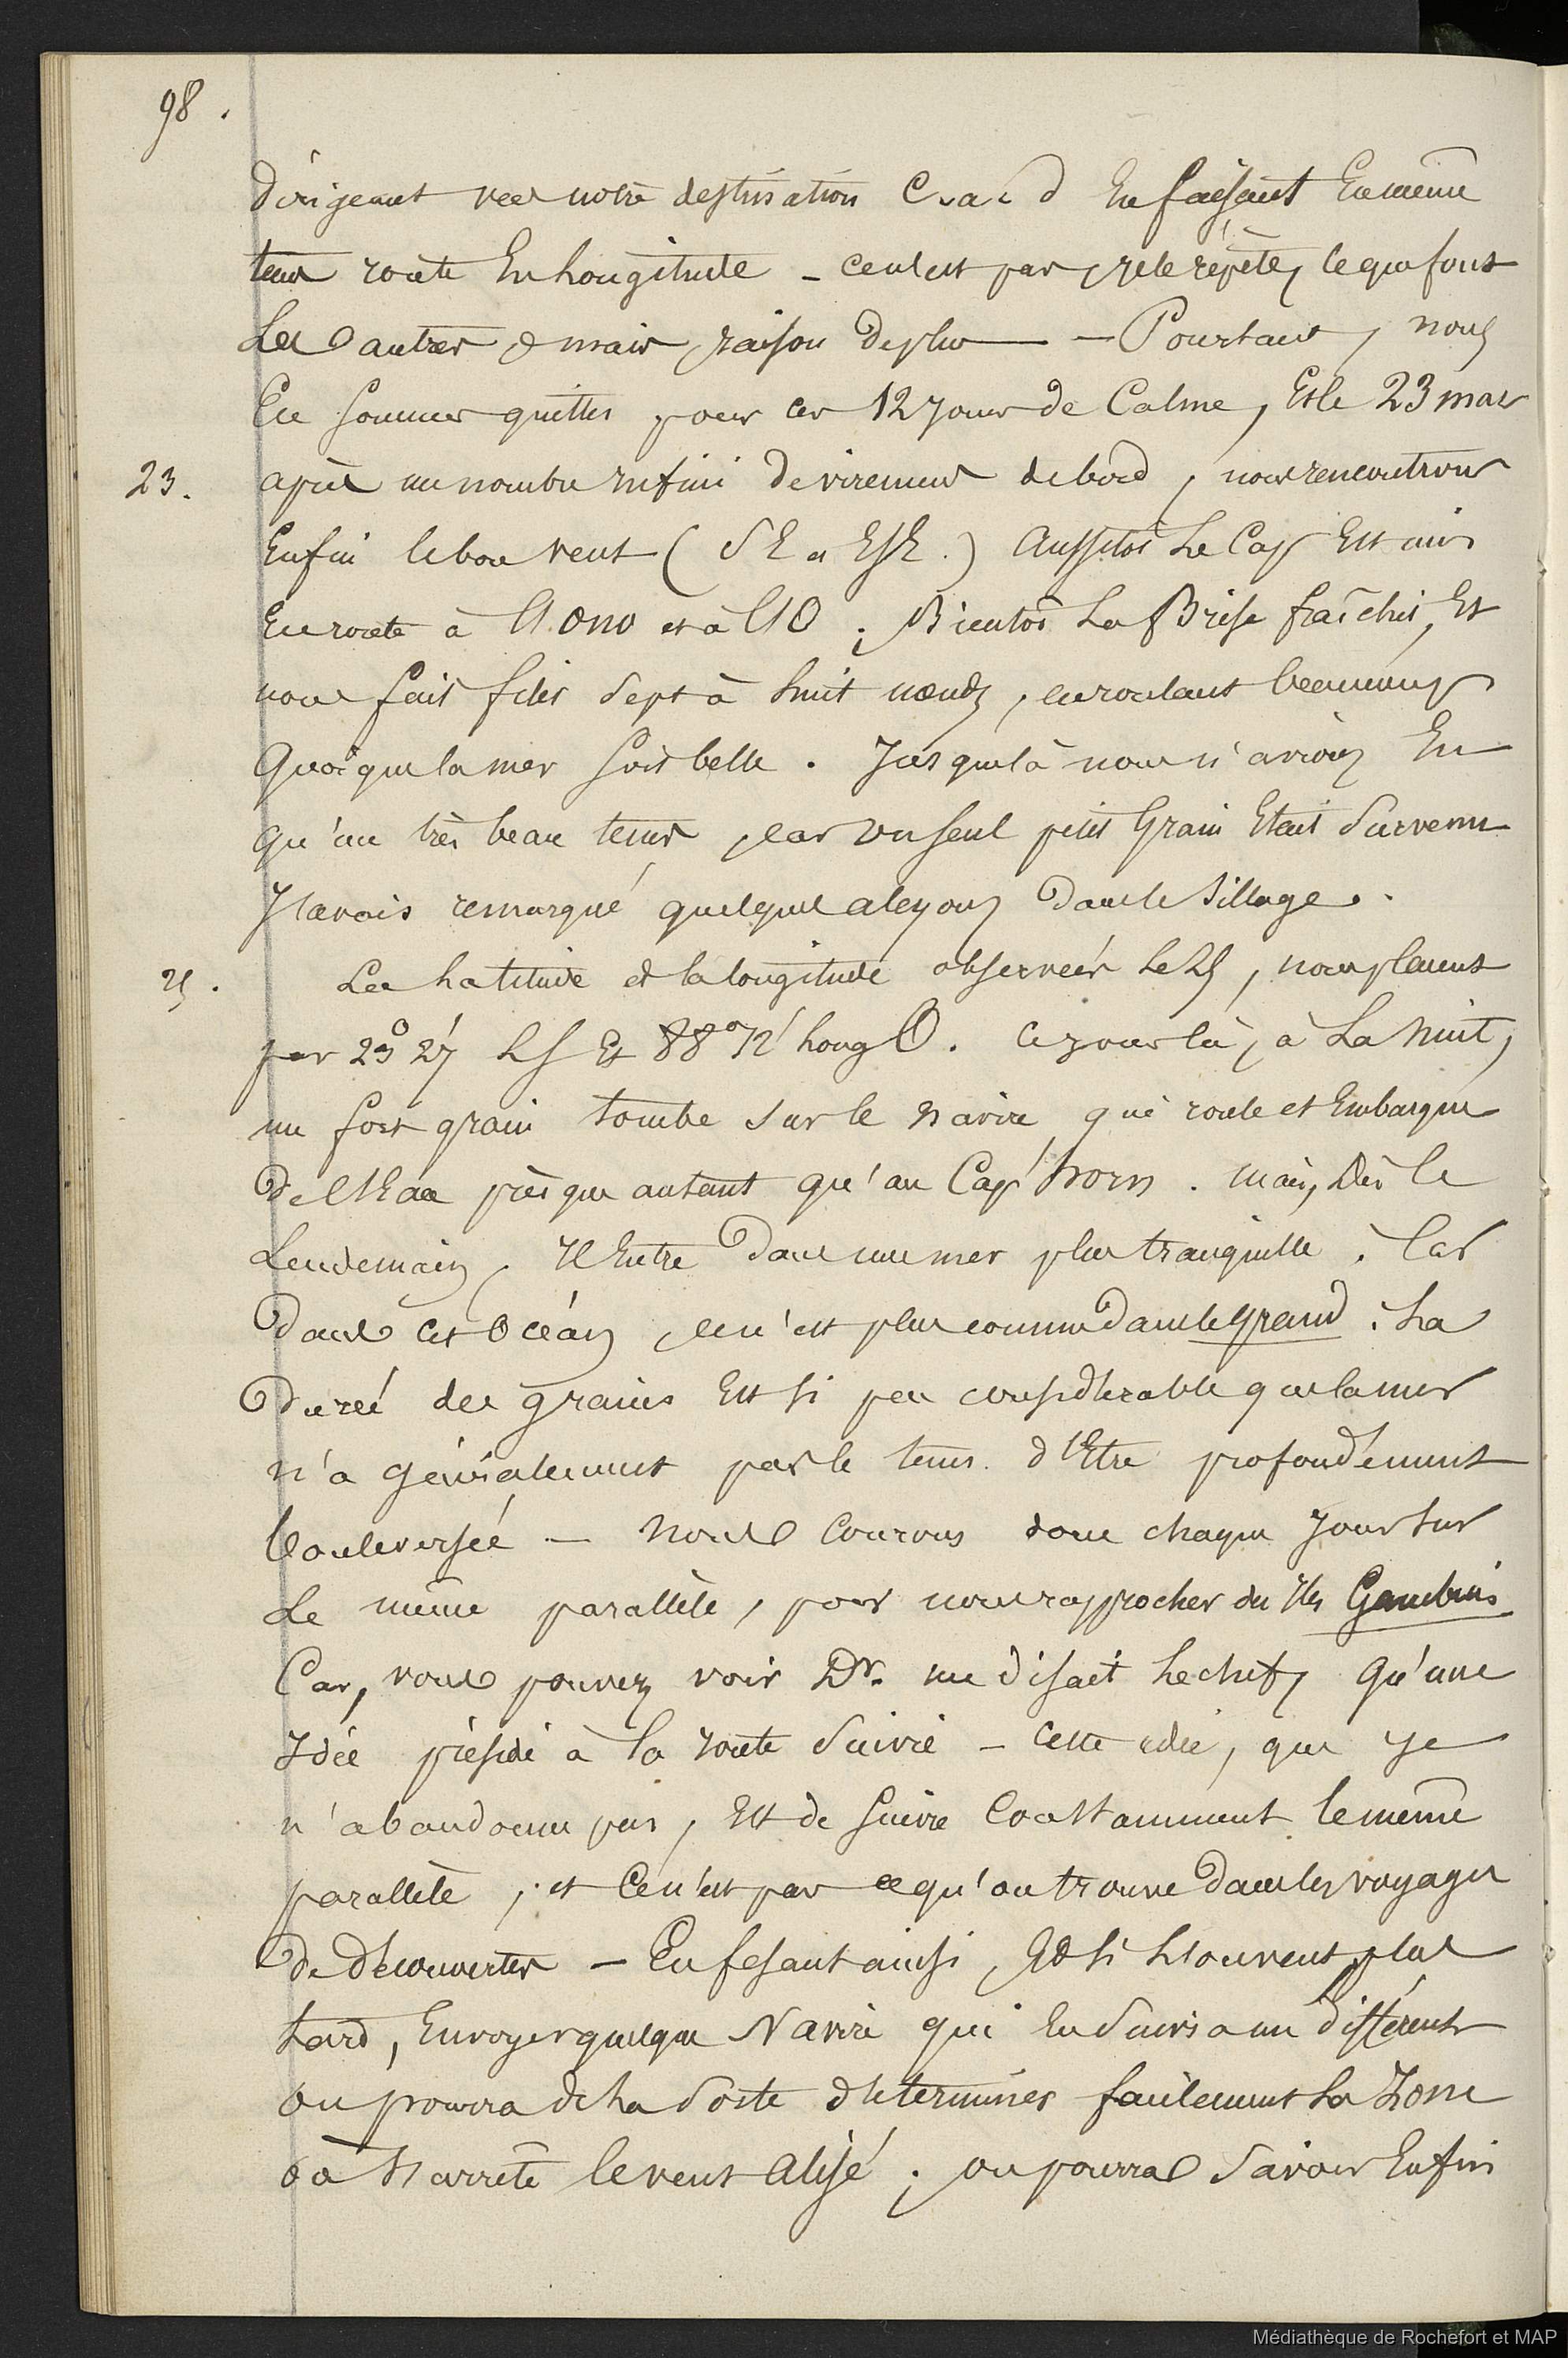 98.
Dirigeant vers notre destination C.a.d En faisant En même
tems route En Longitude – ce n'est pas, je le répète, ce que font
Les autres, mais raison de plus — Pourtant, nous
En sommes quittes pour ces 12 jours de Calme, Et le 23 mars
23. après un nombre infini de virements de bord, nous rencontrons
Enfin le bon vent (SE à ESE.) Aussitôt Le Cap Est mis
En route à l'ONO et à l'O. Bientôt La Brise fraîchit, Et
nous fait filer sept à huit nœuds, en roulant beaucoup
Quoique la mer soit belle. Jusque là nous n'avions Eu
qu'un très beau tems, car un seul petit Grain Etait Survenu
J'avais remarqué quelques alcyons Dans le sillage.
25. La Latitude et la longitude observées Le 25, nous placent
par 23° 27' LS Et 88° 12' Long O. Ce jour là, à La nuit,
un fort grain tombe sur le navire, qui roule et Embarque
De l'Eau presque autant qu'au Cap horn. mais, Dès le
Lendemain, Il Entre Dans une mer plus tranquille. Car
Dans cet Océan, ce n'est plus comme Dans le Grand. La
Durée des grains Est si peu considérable que la mer
n'a généralement pas le tems d'Etre profondément
bouleversée — Nous Courons donc chaque Jour sur
Le même parallèle, pour nous rapprocher des Iles Gambiers
Car, vous pouvez voir Dr. me disait Le chef, qu'une
Idée préside à la route Suivie – Cette idée, que je
n'abandonne pas, Est de suivre Constamment le même
parallèle; et Ce n'est pas ce qu'on trouve Dans les voyages
De Découvertes – En fesant ainsi, Et si L'on veut plus
tard, Envoyer quelque Navire qui En Suivra un différent
On pourra de La Sorte déterminer facilement La Zone
où s'arrête le vent Alisé; on pourra Savoir Enfin
Médiathèque de Rochefort et MAP